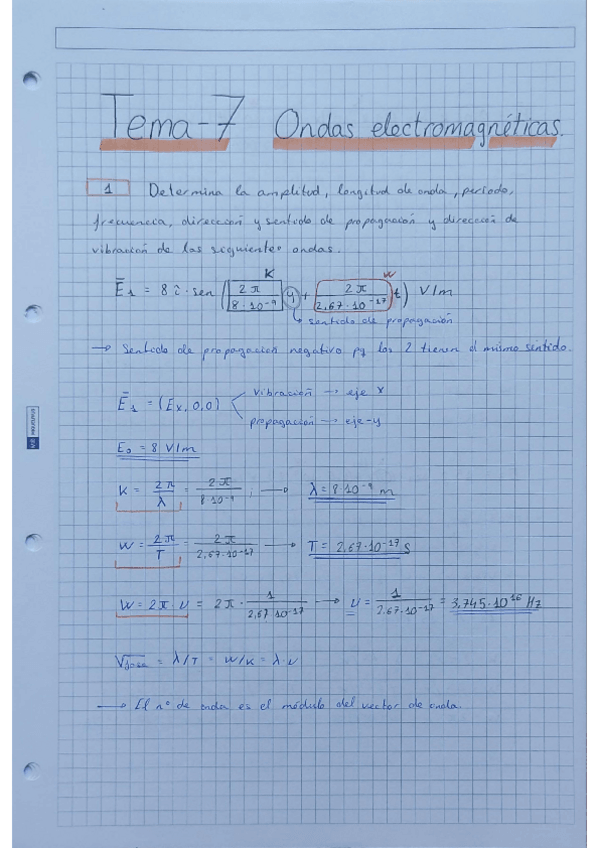 Tema-7 Ondas electromagnéticas.
1 Determina la amplitud, longitud de onda, periodo,
frecuencia, dirección y sentido de propagación y dirección de
vibración de las siguientes ondas.
K W
E̅₁ = 8 î · sen (2π / 8·10⁻⁹ y + 2π / 2,67·10⁻¹⁷ t) V/m
↳ sentido de propagación
→ Sentido de propagación negativo pq los 2 tienen el mismo sentido.
E̅₁ = (Ex, 0,0) vibración → eje x
propagación → eje-y
E₀ = 8 V/m
K = 2π/λ = 2π / 8·10⁻⁹ ; → λ = 8·10⁻⁹ m
W = 2π/T = 2π / 2,67·10⁻¹⁷ → T = 2,67·10⁻¹⁷ s
W = 2π·ν = 2π · 1 / 2,67·10⁻¹⁷ → ν = 1 / 2,67·10⁻¹⁷ = 3,745·10¹⁶ Hz
Vfase = λ/T = W/K = λ·ν
→ El nº de onda es el módulo del vector de onda.